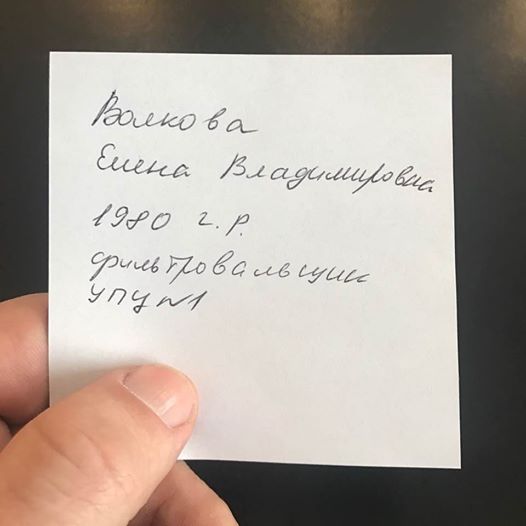 Волкова
Елена Владимировна
1980 г.р.
фильтровальщик
УПЦ №1